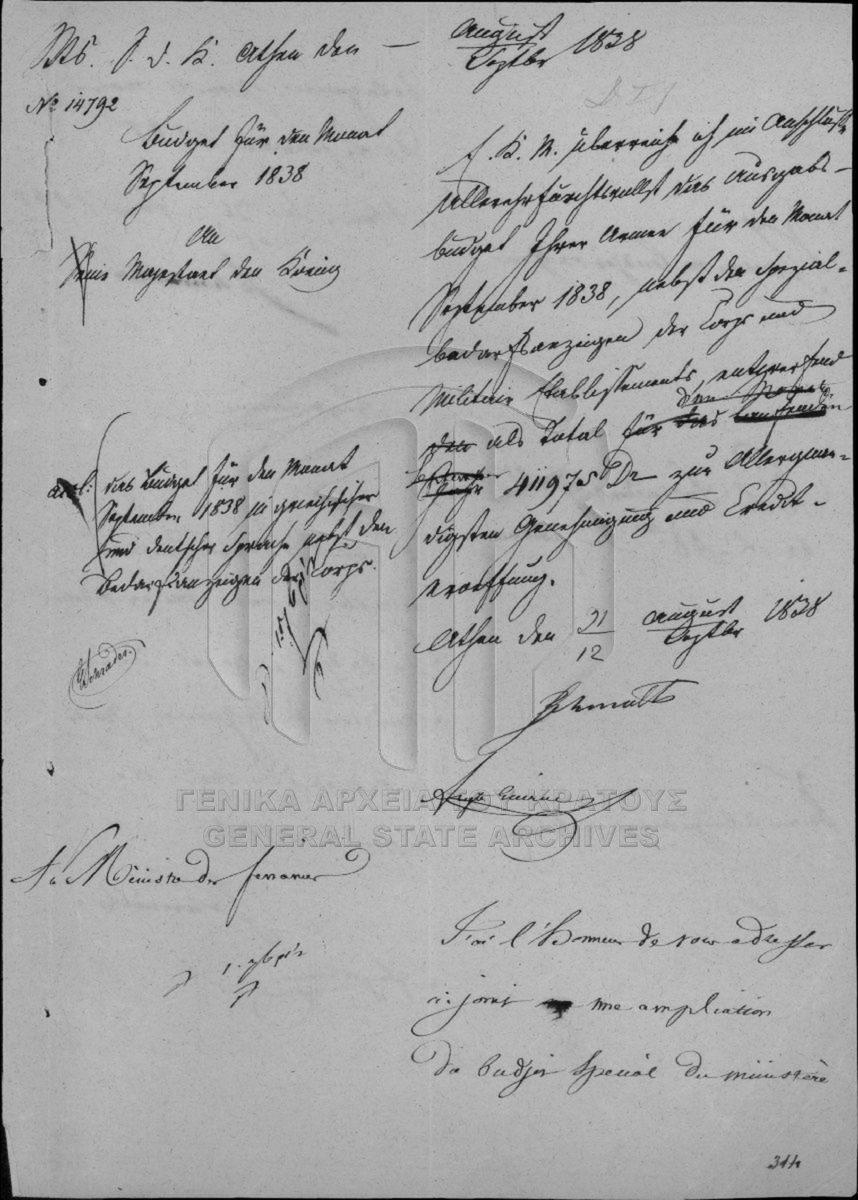 Athen den — August / Septbr 1838
No 14792
Budget für den Monat
September 1838
An
Seine Majestaet den König
E. K. M. überreiche ich im Anschluße
allerehrfurchtsvollst das Ausgabs-
budget Ihrer Armee für den Monat
September 1838, nebst den Spezial-
bedarfsanzeigen der Corps und
Militair Etablissements, entwerfend
als Total für
411975 Dr zur Allergnä-
digsten Genehmigung und Credit-
eroeffnung.
Athen den 31/12 August / Septbr 1838
Schmaltz
das Budget für den Monat
September 1838 in griechischer
und deutscher Sprache nebst den
Bedarfsanzeigen der Corps.
Schrader
ΓΕΝΙΚΑ ΑΡΧΕΙΑ ΤΟΥ ΚΡΑΤΟΥΣ
GENERAL STATE ARCHIVES
Au Ministre des finances
J'ai l'honneur de vous adresser
ci joint une ampliation
du budjet spécial du ministère
314